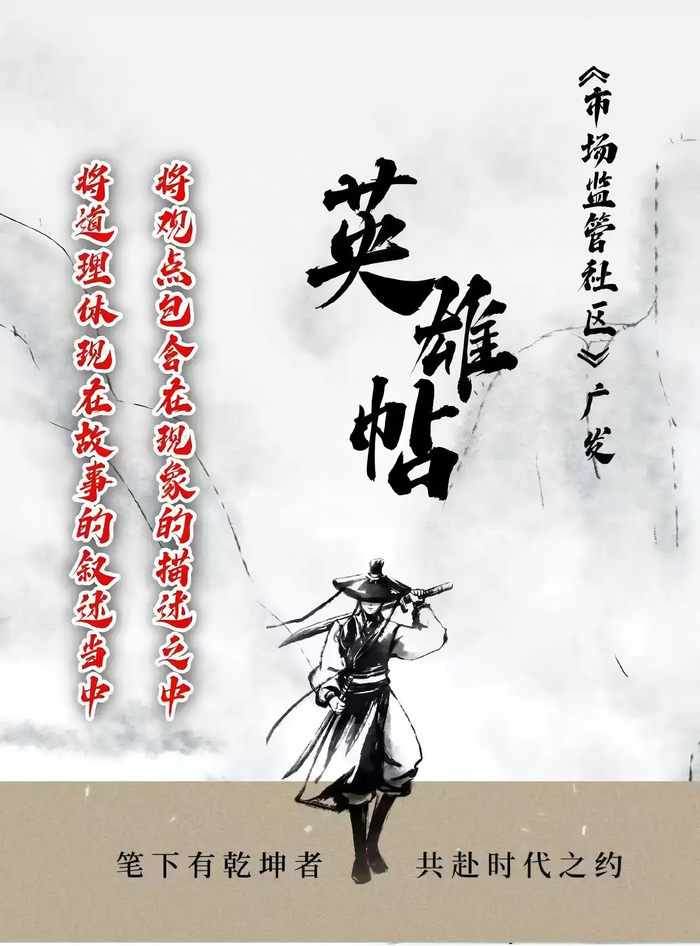 《市场监管社区》广发
英雄帖
将观点包含在现象的描述之中
将道理体现在故事的叙述当中
笔下有乾坤者 共赴时代之约